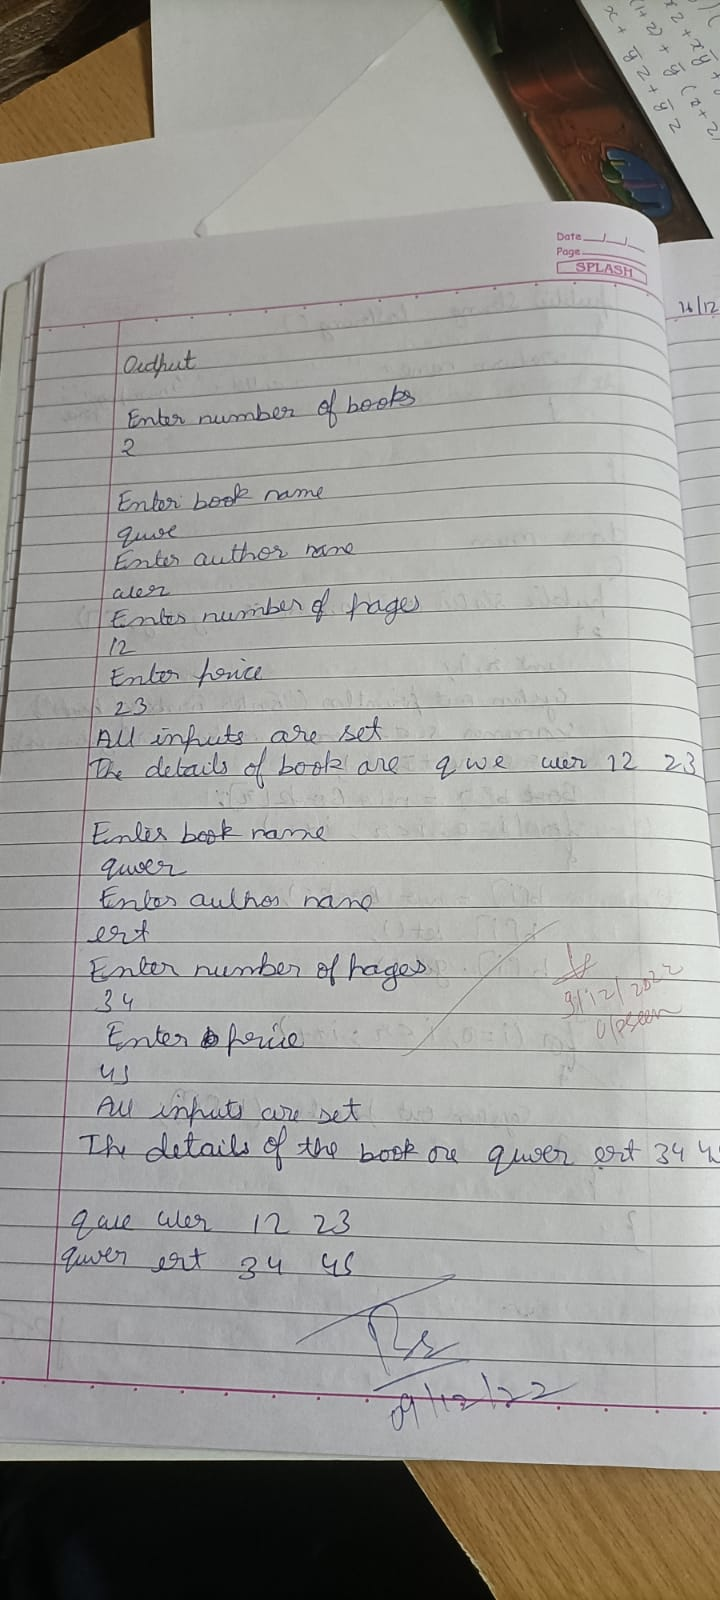 Date
Page
SPLASH
16/12
Output
Enter number of books
2
Enter book name
quwe
Enter author name
wer
Enter number of pages
12
Enter price
23
All inputs are set
The details of book are qwe wer 12 23
Enter book name
quwer
Enter author name
ert
Enter number of pages
34
Enter price
45
All inputs are set
The details of the book are quwer ert 34 4
9/12/2022
O/p seen
que wer 12 23
quwer ert 34 45
09/12/22